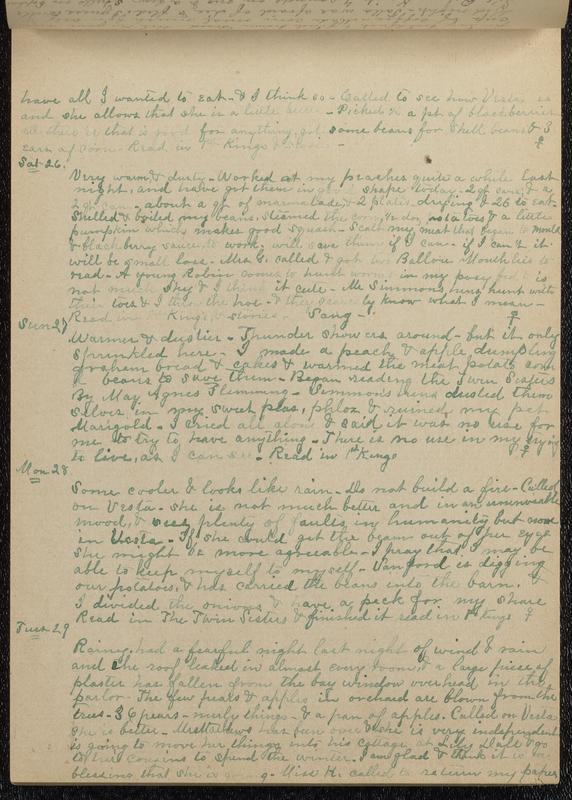 have all I wanted to eat - & I think so - Called to see how Vesta is
and she allows that she is a little better - Picked a pt of blackberries
all there is that is good for anything, got some beans for shell beans & 3
ears of corn - Read in 1st Kings &
Sat 26.
Very warm & dusty - Worked at my peaches quite a while last
night, and have got them in good shape today - 2 qt cans, & a
can - about a qt. of marmalade, & 2 plates drying & 26 to eat -
Shelled & boiled my beans, steamed the corn, potatoes & a little
pumpkin which makes good squash - Scalt my meat that began to mould
& blackberry sauce to work. will save them if I can - if I can't it
will be small loss - Mrs G. called & got two Ballou Monthlies to
read - A young Robin comes to hunt worms in my posy bed & is
not much shy & I think it cute - Mr Simmons hens hunt with
their toes & I throw the hoe - & they scarcely know what I mean -
Read in 1st Kings & stories - Sang -
Sun 27
Warmer & dustier - Thunder showers around - but it only
sprinkled here - I made a peach & apple dumpling
graham bread & cakes & warmed the meat potato corn
& beans to save them - Began reading the Twin Sisters
By May Agnes Flemming - Simmons hens dusted them
selves in my sweet peas, phlox & ruined my pet
Marigold - I cried all alone & said it was no use for
me to try to have anything - There is no use in my trying
to live, as I can see - Read in 1st Kings
Mon 28
Some cooler & looks like rain - do not build a fire - Called
on Vesta - she is not much better and in an unenviable
mood, & sees plenty of faults in humanity but none
in Vesta - If she could get the beam out of her eye
she might be more agreeable - I pray that I may be
able to keep myself to myself - Vanford is digging
our potatoes, & has carried the beans into the barn. &
I divided the onions & have a peck for my share
Read in The Twin Sisters & finished it read in 1st Kings
Tues 29
Rainy, had a fearful night last night of wind & rain
and the roof leaked in almost every room & a large piece of
plaster has fallen from the bay window overhead in the
parlor - The few pears & apples in orchard are blown from the
trees - 36 pears - nurly things - & a pan of apples. Called on Vesta
she is better - Mrs Mathews has been over & she is very independent
is going to move her things into his cottage at Lily Dale & go
to her cousins to spend the winter. I am glad & think it is a
blessing that she is going - Miss H. called to return my papers